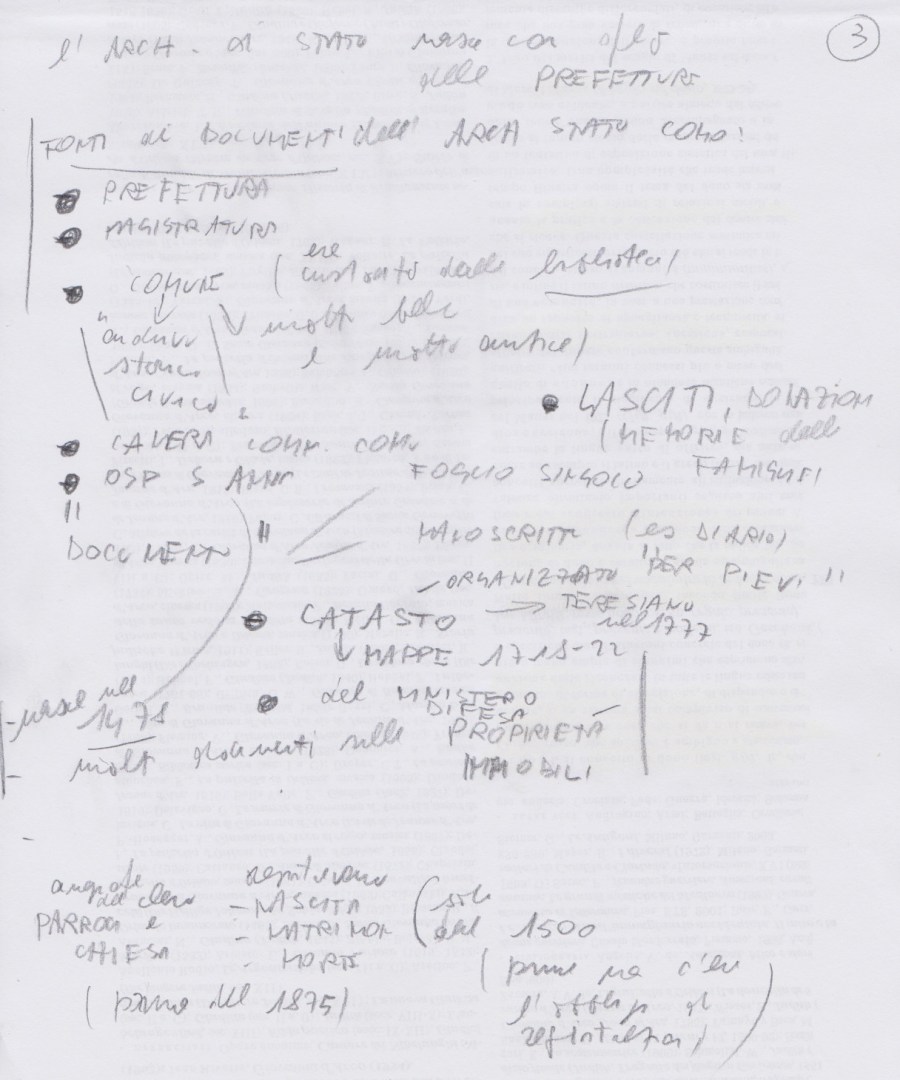 3
l'ARCH. di STATO nasce con
delle PREFETTURE
FONTI di DOCUMENTI dell' ARCH STATO COMO:
PREFETTURA
MAGISTRATURA
COMUNE (era custodito dalla biblioteca)
"archivio storico civico"
molto belle e molto antice)
LASCITI, DONAZIONI
(MEMORIE delle FAMIGLIE)
CAMERA COMM. COMO
OSP S ANNA
FOGLIO SINGOLO
DOCUMENTO
MANOSCRITTI (es DIARIO)
ORGANIZZATO "PER PIEVI"
CATASTO → TERESIANO
nel 1777
MAPPE 1718-22
del MINISTERO
DIFESA
- nasce nel
1478
- molti documenti sulle PROPRIETÀ
IMMOBILI
anagrafe
PARROCI e
CHIESA
(prima del 1875)
registravano
- NASCITA
- MATRIMON
- MORTE
(solo
dal 1500
(prima non c'era
l'obbligo di
registrazione)